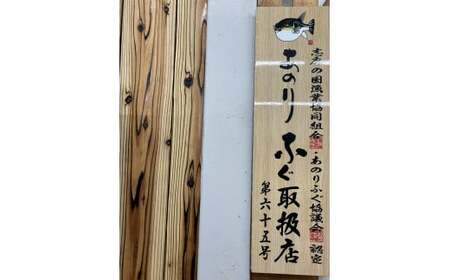 志摩の国漁業協同組合・あのりふぐ協議会認定
あのりふぐ取扱店
第六十五号